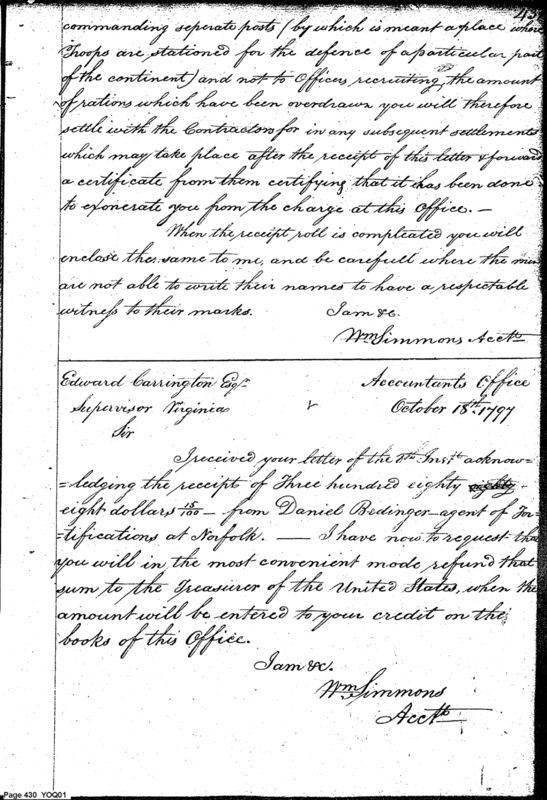 43
commanding seperate posts (by which is meant a place where
Troops are stationed for the defence of a particular part
of the continent) and not to Officers recruiting, the amount
of rations which have been overdrawn you will therefore
settle with the Contractors for in any subsequent settlements
which may take place after the receipt of this letter & forward
a certificate from them certifying that it has been done
to exonerate you from the charge at this Office. —
When the receipt roll is compleated you will
enclose the same to me, and be carefull where the men
are not able to write their names to have a respectable
witness to their marks. I am &c.
Wm Simmons Acctt
Edward Carrington Esqr. Accountants Office
Supervisor Virginia October 18th. 1797
Sir
I received your letter of the Inst. acknow=
=ledging the receipt of Three hundred eighty eighty
eight dollars 15/100 — from Daniel Bedinger agent of For=
=tifications at Norfolk. — I have now to request that
you will in the most convenient mode refund that
sum to the Treasurer of the United States, when the
amount will be entered to your credit on the
books of this Office.
I am &c.
Wm Simmons
Acctt
Page 430 YOQ01